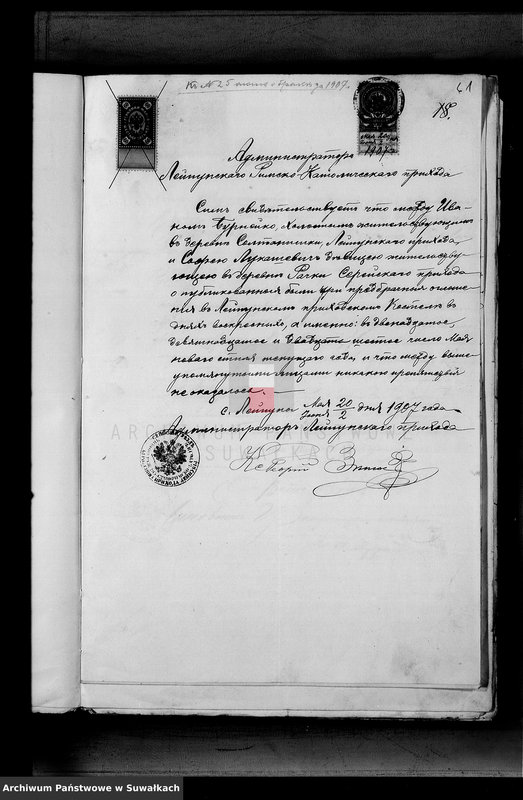 61
18.
1907
Администраторъ
Лейпунскаго Римско-Католическаго прихода
Симъ свидѣтельствуетъ что между Ива-
номъ Бурнейко, холостымъ жительствующимъ
въ деревнѣ Лейпунскаго прихода
и Софіею Лукашевичъ дѣвицею жительству-
ющею въ деревнѣ Рачки Серейскаго прихода
опубликованныя были три предбрачныя оглаше-
нія въ Лейпунскомъ приходскомъ Костелѣ въ
дняхъ воскресныхъ, а именно: въ двенадцатое,
девятнадцатое и двадцать шестое число Мая
новаго стиля текущаго года, и что между выше-
упомянутыми лицами никакою препятствій
не оказалось.
с. Лейпуны Мая 20 / Іюня 2 дня 1907 года
Администраторъ Лейпунскаго прихода
Кс
ARCHIWUM PAŃSTWOWE
W SUWAŁKACH
Archiwum Państwowe w Suwałkach